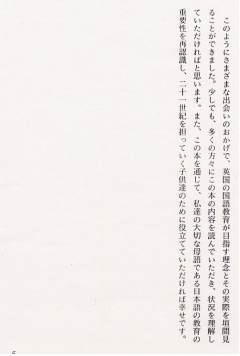 このようにさまざまな出会いのおかげで、英国の国語教育が目指す理念とその実際を垣間見
ることができました。少しでも、多くの方々にこの本の内容を読んでいただき、状況を理解し
ていただければと思います。また、この本を通じて、私達の大切な母語である日本語の教育の
重要性を再認識し、二十一世紀を担っていく子供達のために役立てていただければ幸せです。